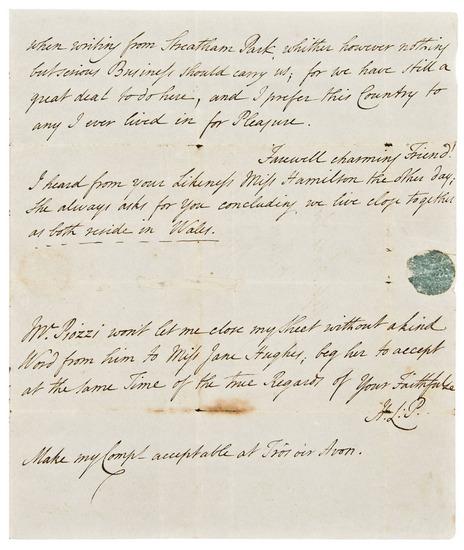 when writing from Streatham Park, whither however nothing
but serious Business should carry us; for we have still a
great deal to do here, and I prefer this Country to
any I ever lived in for Pleasure.
Farewell charming Friend!
I heard from your Likeness Miss Hamilton the other day;
She always asks for you concluding we live close together
as both reside in Wales.
Mr. Piozzi won't let me close my Sheet without a kind
Word from him to Miss Jane Hughes; beg her to accept
at the same Time of the true Regards of Your Faithful
H: L: P.
Make my Compts acceptable at Trôs oir Avon.